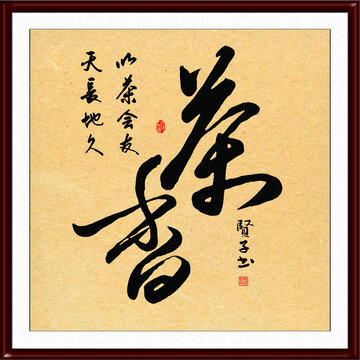 茶香
以茶会友
天長地久
賢子书